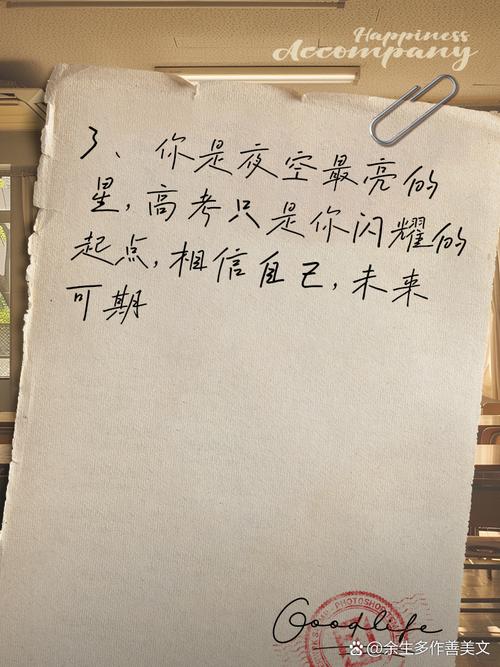 Happiness
Accompany
3、你是夜空最亮的
星,高考只是你闪耀的
起点,相信自己,未来
可期
PHOTOSHOP
Goodlife
余生多作善美文